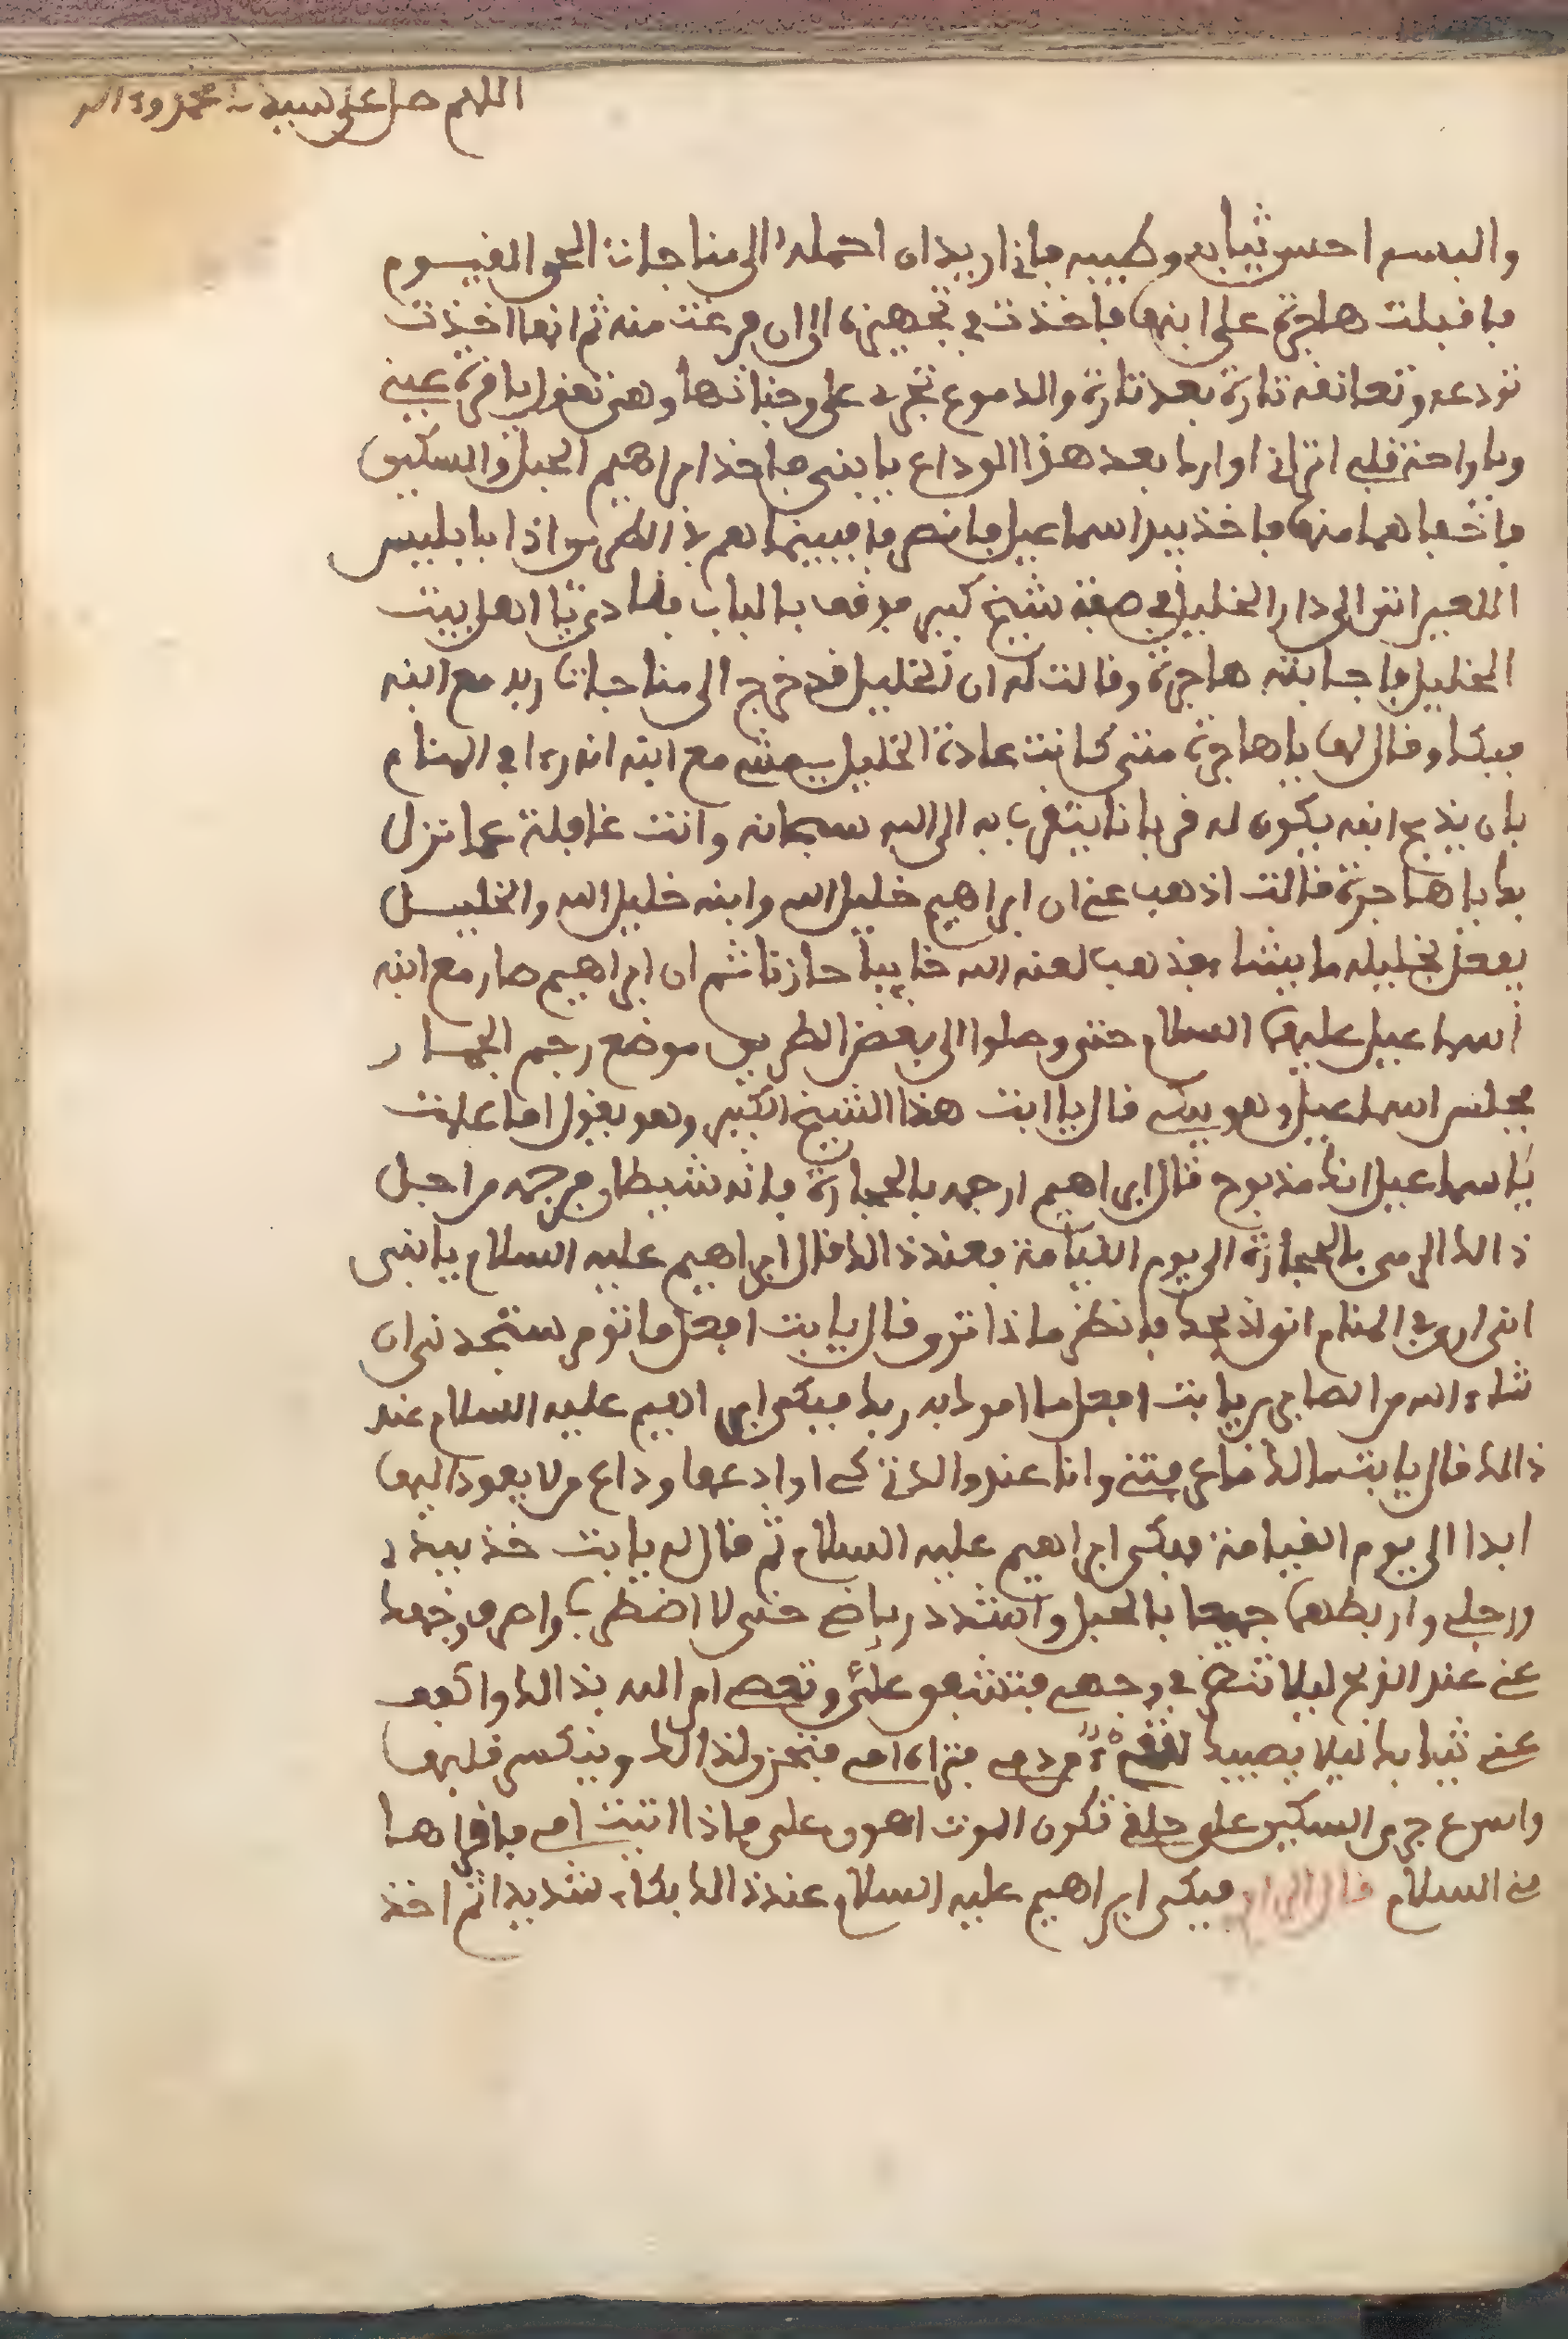 اللهم صل على سيدنا محمد واله
والبسه احسن ثيابه وطيبه فاني اريد ان احمله الى مناجات الحي القيوم
فاقبلت هاجرة على ابنها فاخذت في تجهيزه الى ان فرغت منه ثم انها اخذت
تودعه وتعانقه تارة بعد تارة والدموع تجري على وجناتها وهي تقول يا قرة عيني
ويا راحة قلبي اتراني اواريا بعد هذا الوداع يا بني فاخذ ابراهيم الحبل والسكين
فاخفاهما منها فاخذ بيد اسماعيل فانصرفا فبينما هم في الطريق اذا بابليس
اللعين اتى الى دار الخليل في صفة شيخ كبير فوقف بالباب فنادى يا اهل بيت
الخليل فاجابته هاجرة وقالت له ان الخليل قد خرج الى مناجات ربه مع ابنه
فبكا وقال لها يا هاجرة متى كانت عادة الخليل يمشي مع ابنه انه رءا في المنام
بان يذبح ابنه يكون له قربانا يتقرب به الى الله سبحانه وانت غافلة عما نزل
بك يا هاجرة فقالت اذهب عني ان ابراهيم خليل الله وابنه خليل الله والخليل
يفعل بخليله ما يشاء فذهب لعنه الله خايبا حازنا ثم ان ابراهيم صار مع ابنه
اسماعيل عليهما السلام حتى وصلوا الى بعض الطريق موضع رجم الجمار
فجلس اسماعيل وهو يبكي قال يا ابت هذا الشيخ الكبير وهو يقول اما علمت
يا اسماعيل انك مذبوح قال ابراهيم ارجمه بالحجارة فانه شيطان فرجمه من اجل
ذالك الرمي بالحجارة الى يوم القيامة فعند ذالك قال ابراهيم عليه السلام يا بني
اني ارى في المنام اني اذبحك فانظر ماذا ترى قال يا بت افعل ما تومر ستجدني ان
شاء الله من الصابرين يا بت افعل ما امرك به ربك فبكى ابراهيم عليه السلام عند
ذالك قال يا بت مالك ما عرفتني وانا عند والدتي كي اوادعها وداع من لا يعود اليها
ابدا الى يوم القيامة فبكى ابراهيم عليه السلام ثم قال له يا بت خذ بيدي
ورجلي واربطهما جميعا بالحبل واشدد رباطي حتى لا اضطرب واصرف وجهك
عني عند الذبح ليلا تنظر في وجهي فتشفق علي وتعصي امر الله بذالك واكفف
عني ثيابك ليلا يصيبك من دمي فتراه امي فتحزن لذالك وينكسر قلبها
واسرع جري السكين على حلقي تكون الموت اهون علي فاذا اتيت امي فاقراها
مني السلام قال الراوي فبكى ابراهيم عليه السلام عند ذالك بكاء شديدا ثم اخذ